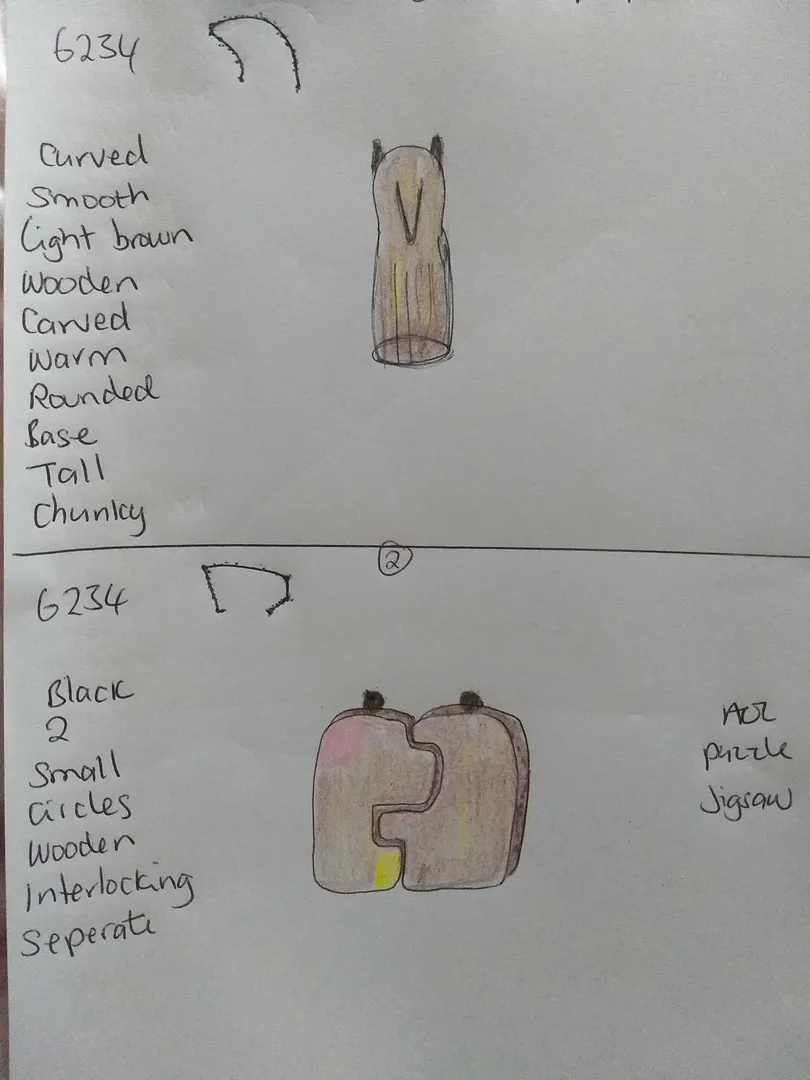 6234
Curved
Smooth
Light brown
Wooden
Carved
Warm
Rounded
Base
Tall
Chunky
2
6234
Black
2
Small
Circles
Wooden
Interlocking
Seperate
AOL
puzzle
Jigsaw